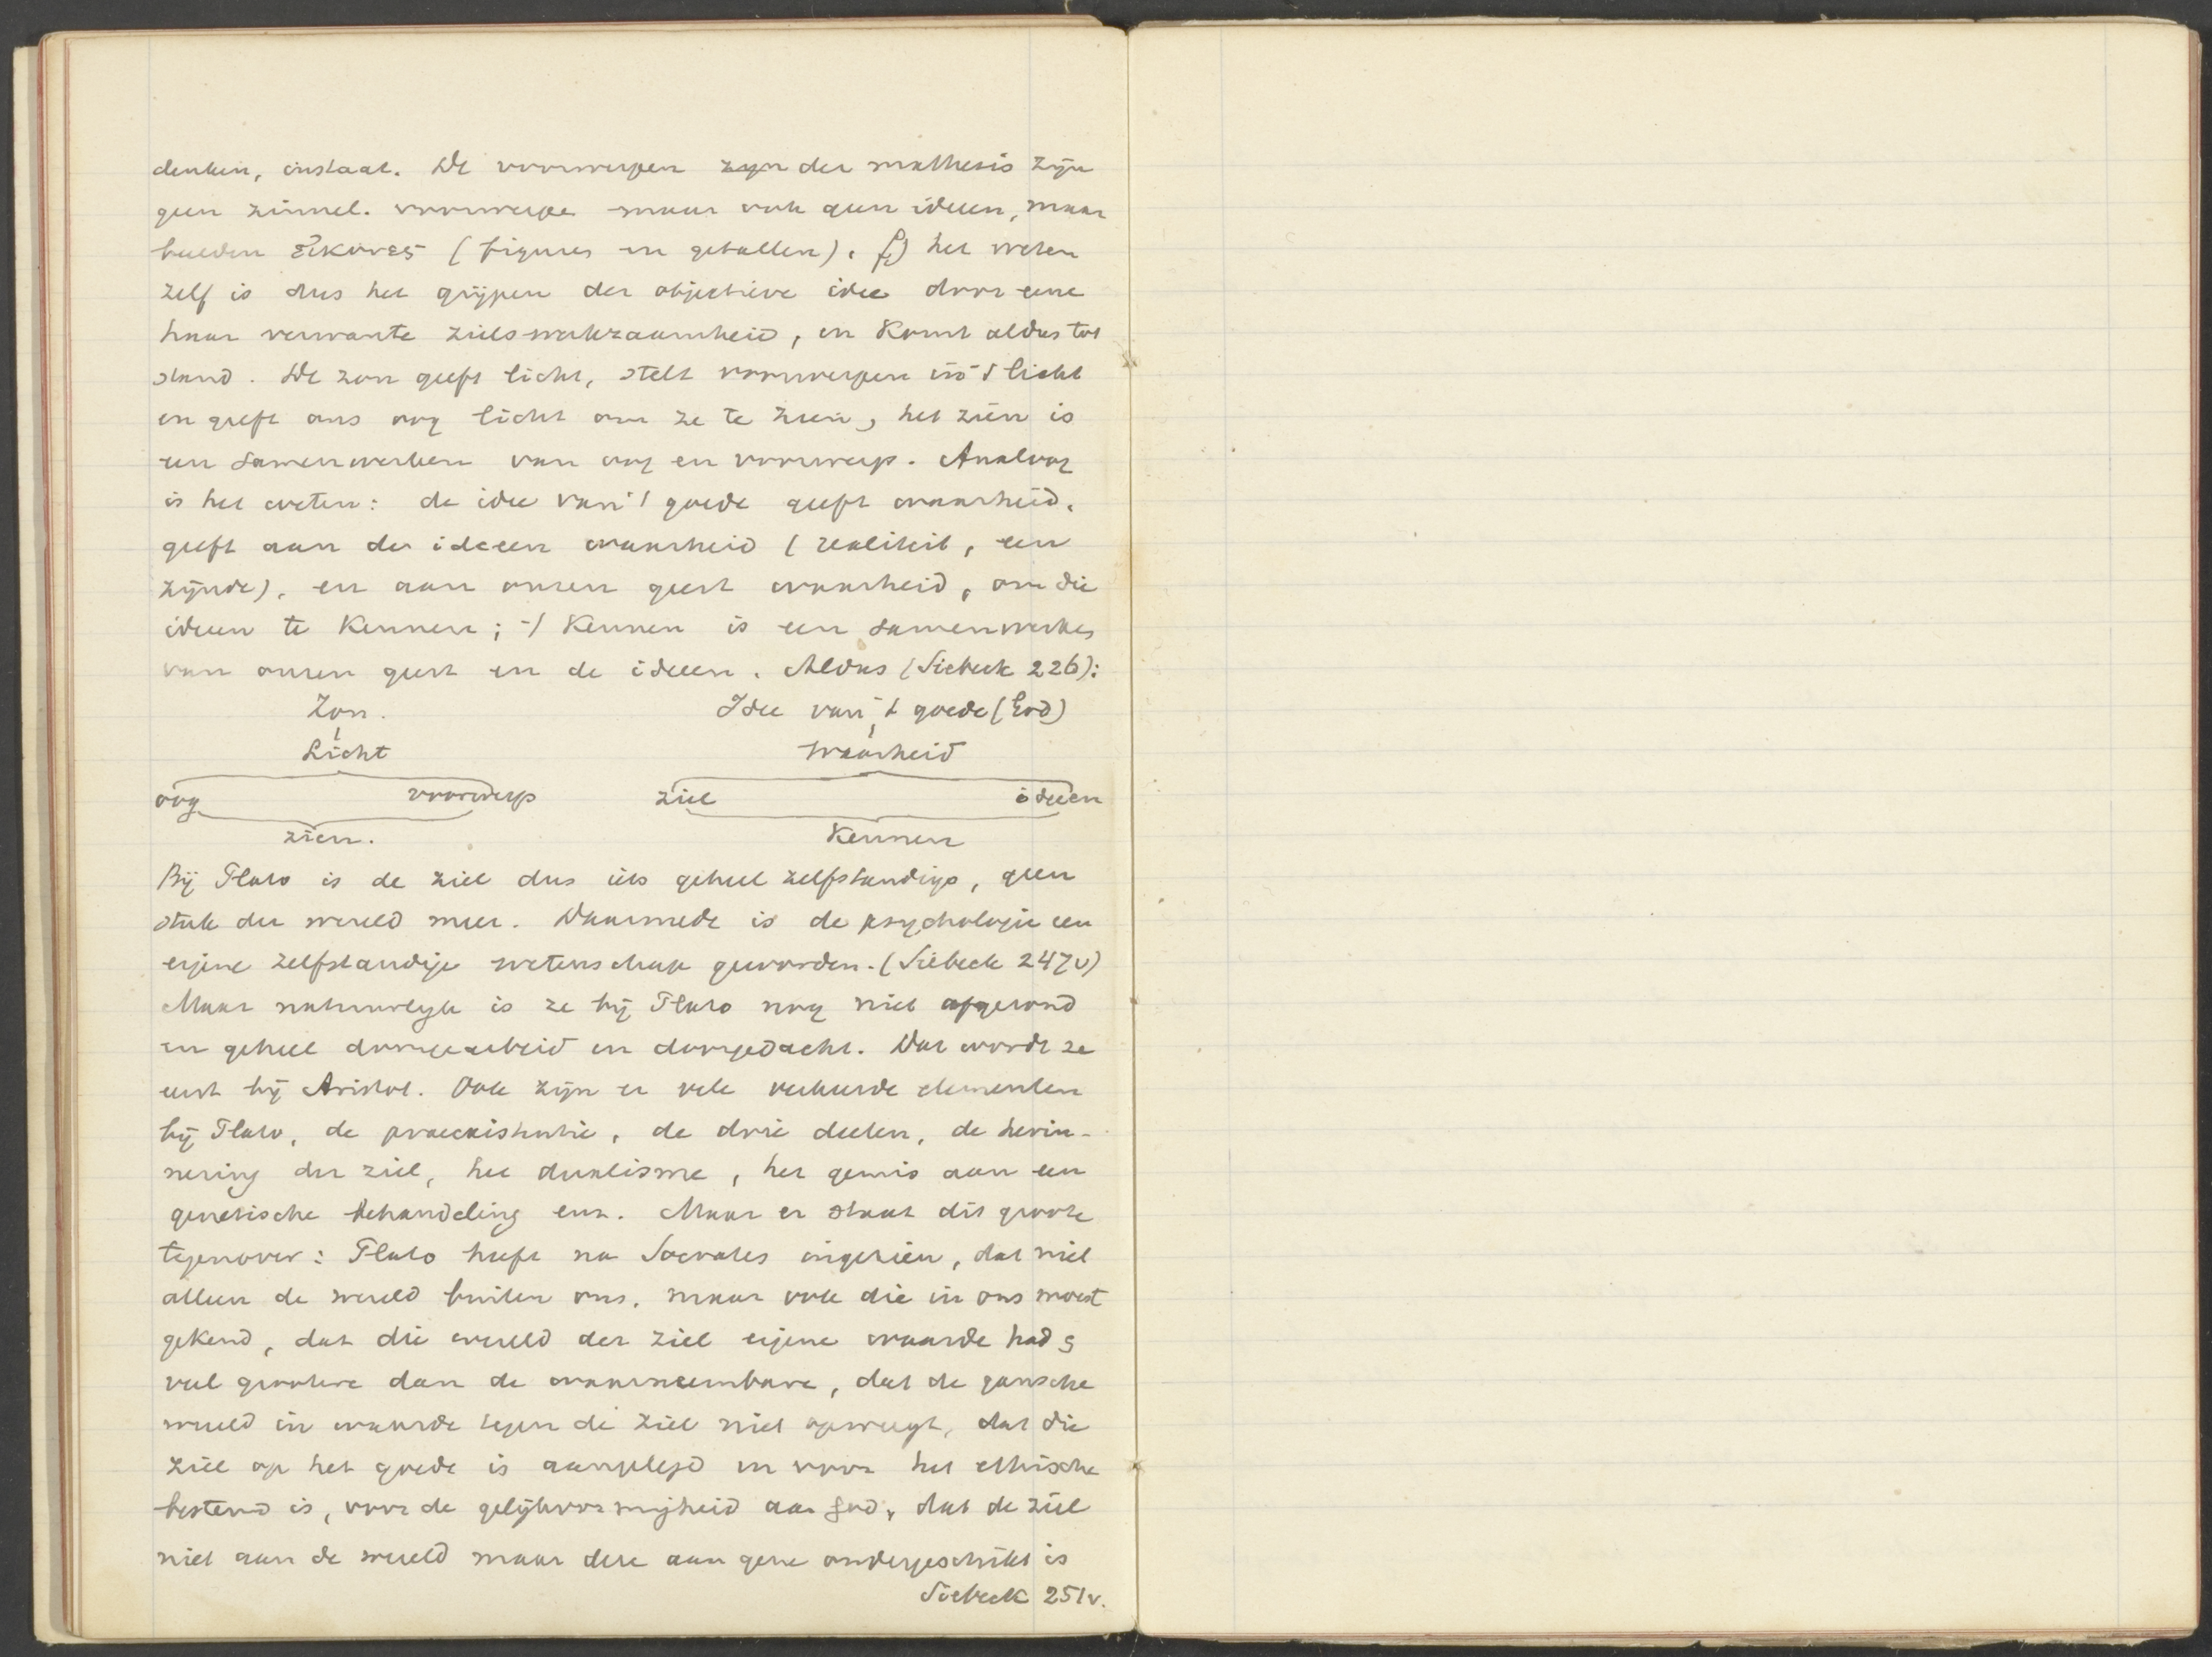 denken, instaat. De voorwerpen zijn der mathesis zijn
geen zinnel. voorwerpe maar ook geen ideeen, maar
beelden εἰκόνες (figures en getallen). f) het weten
zelf is dus het grijpen der objectieve idee door eene
haar verwante zielswerkzaamheid, en komt aldus tot
stand. De zon geeft licht, stelt voorwerpen in 't licht
en geeft ons oog licht om ze te zien, het zien is
een samenwerken van oog en voorwerp. Analoog
is het weten: de idee van 't goede geeft waarheid,
geeft aan de ideeen waarheid (realiteit, een
zijnde), en aan onzen geest waarheid, om die
ideeen te kennen; 't kennen is een samenwerken
van onzen geest en de ideeen. Aldus (Siebeck 226):
Zon. Idee van 't goede (God)
Licht Waarheid
oog voorwerp ziel ideeen
zien. Kennen
Bij Plato is de ziel dus iets geheel zelfstandigs, geen
stuk der wereld meer. Daarmede is de psychologie een
eigene zelfstandige wetenschap geworden. (Siebeck 247v)
Maar natuurlijk is ze bij Plato nog niet afgerond
en geheel doorgearbeid en doorgedacht. Dat wordt ze
eerst bij Aristot. Ook zijn er vele verkeerde elementen
bij Plato, de praeexistentie, de drie deelen, de herin-
nering der ziel, het dualisme, het gemis aan een
genetische behandeling enz. Maar er staat dit groote
tegenover: Plato heeft na Socrates ingezien, dat niet
alleen de wereld buiten ons, maar ook die in ons moest
gekend, dat die wereld der ziel eigene waarde had,
veel grootere dan de waarneembare, dat de gansche
wereld in waarde tegen de ziel niet opweegt, dat die
ziel op het goede is aangelegd en voor het ethische
bestemd is, voor de gelijkvormigheid aan God, dat de ziel
niet aan de wereld maar deze aan gene ondergeschikt is
Siebeck 251v.